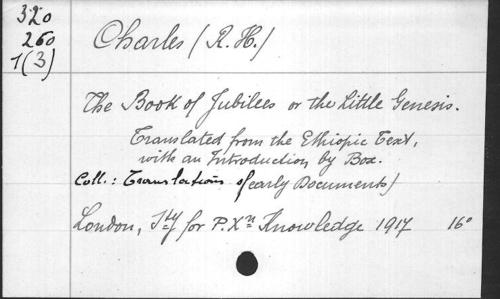 320
260
7(3)
Charles (R. H.)
The Book of Jubilees or the Little Genesis.
Translated from the Ethiopic Text,
with an Introduction, by Box.
Coll.: Translations of early Documents)
London, Sty for P. Xn Knowledge 1917 16°